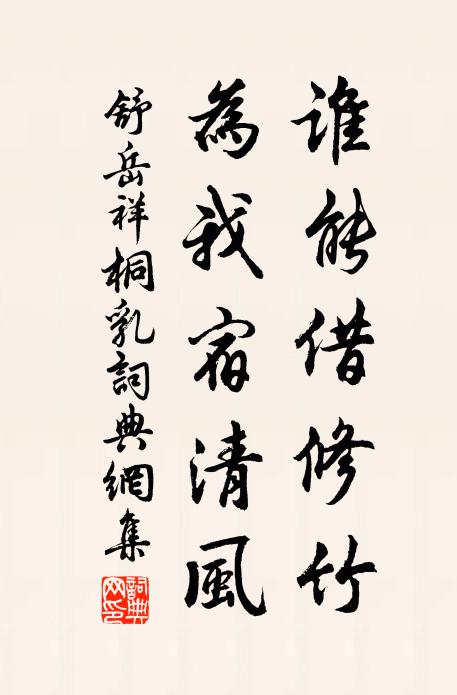 誰能借修竹
為我宿清風
舒岳祥桐乳詞典網集
詞典网印